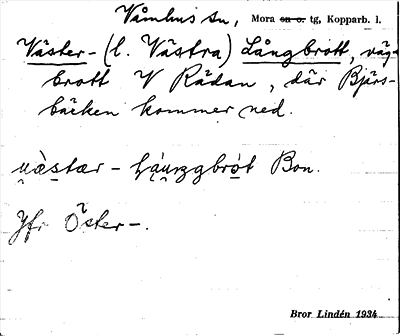 Våmhus sn, Mora sn o. tg, Kopparb. l.
Väster- (l. Västra) Långbrott, väg-
brott V Rädan, där Björs-
bäcken kommer ned.
Bon.
Jfr Öster-.
Bror Lindén 1934